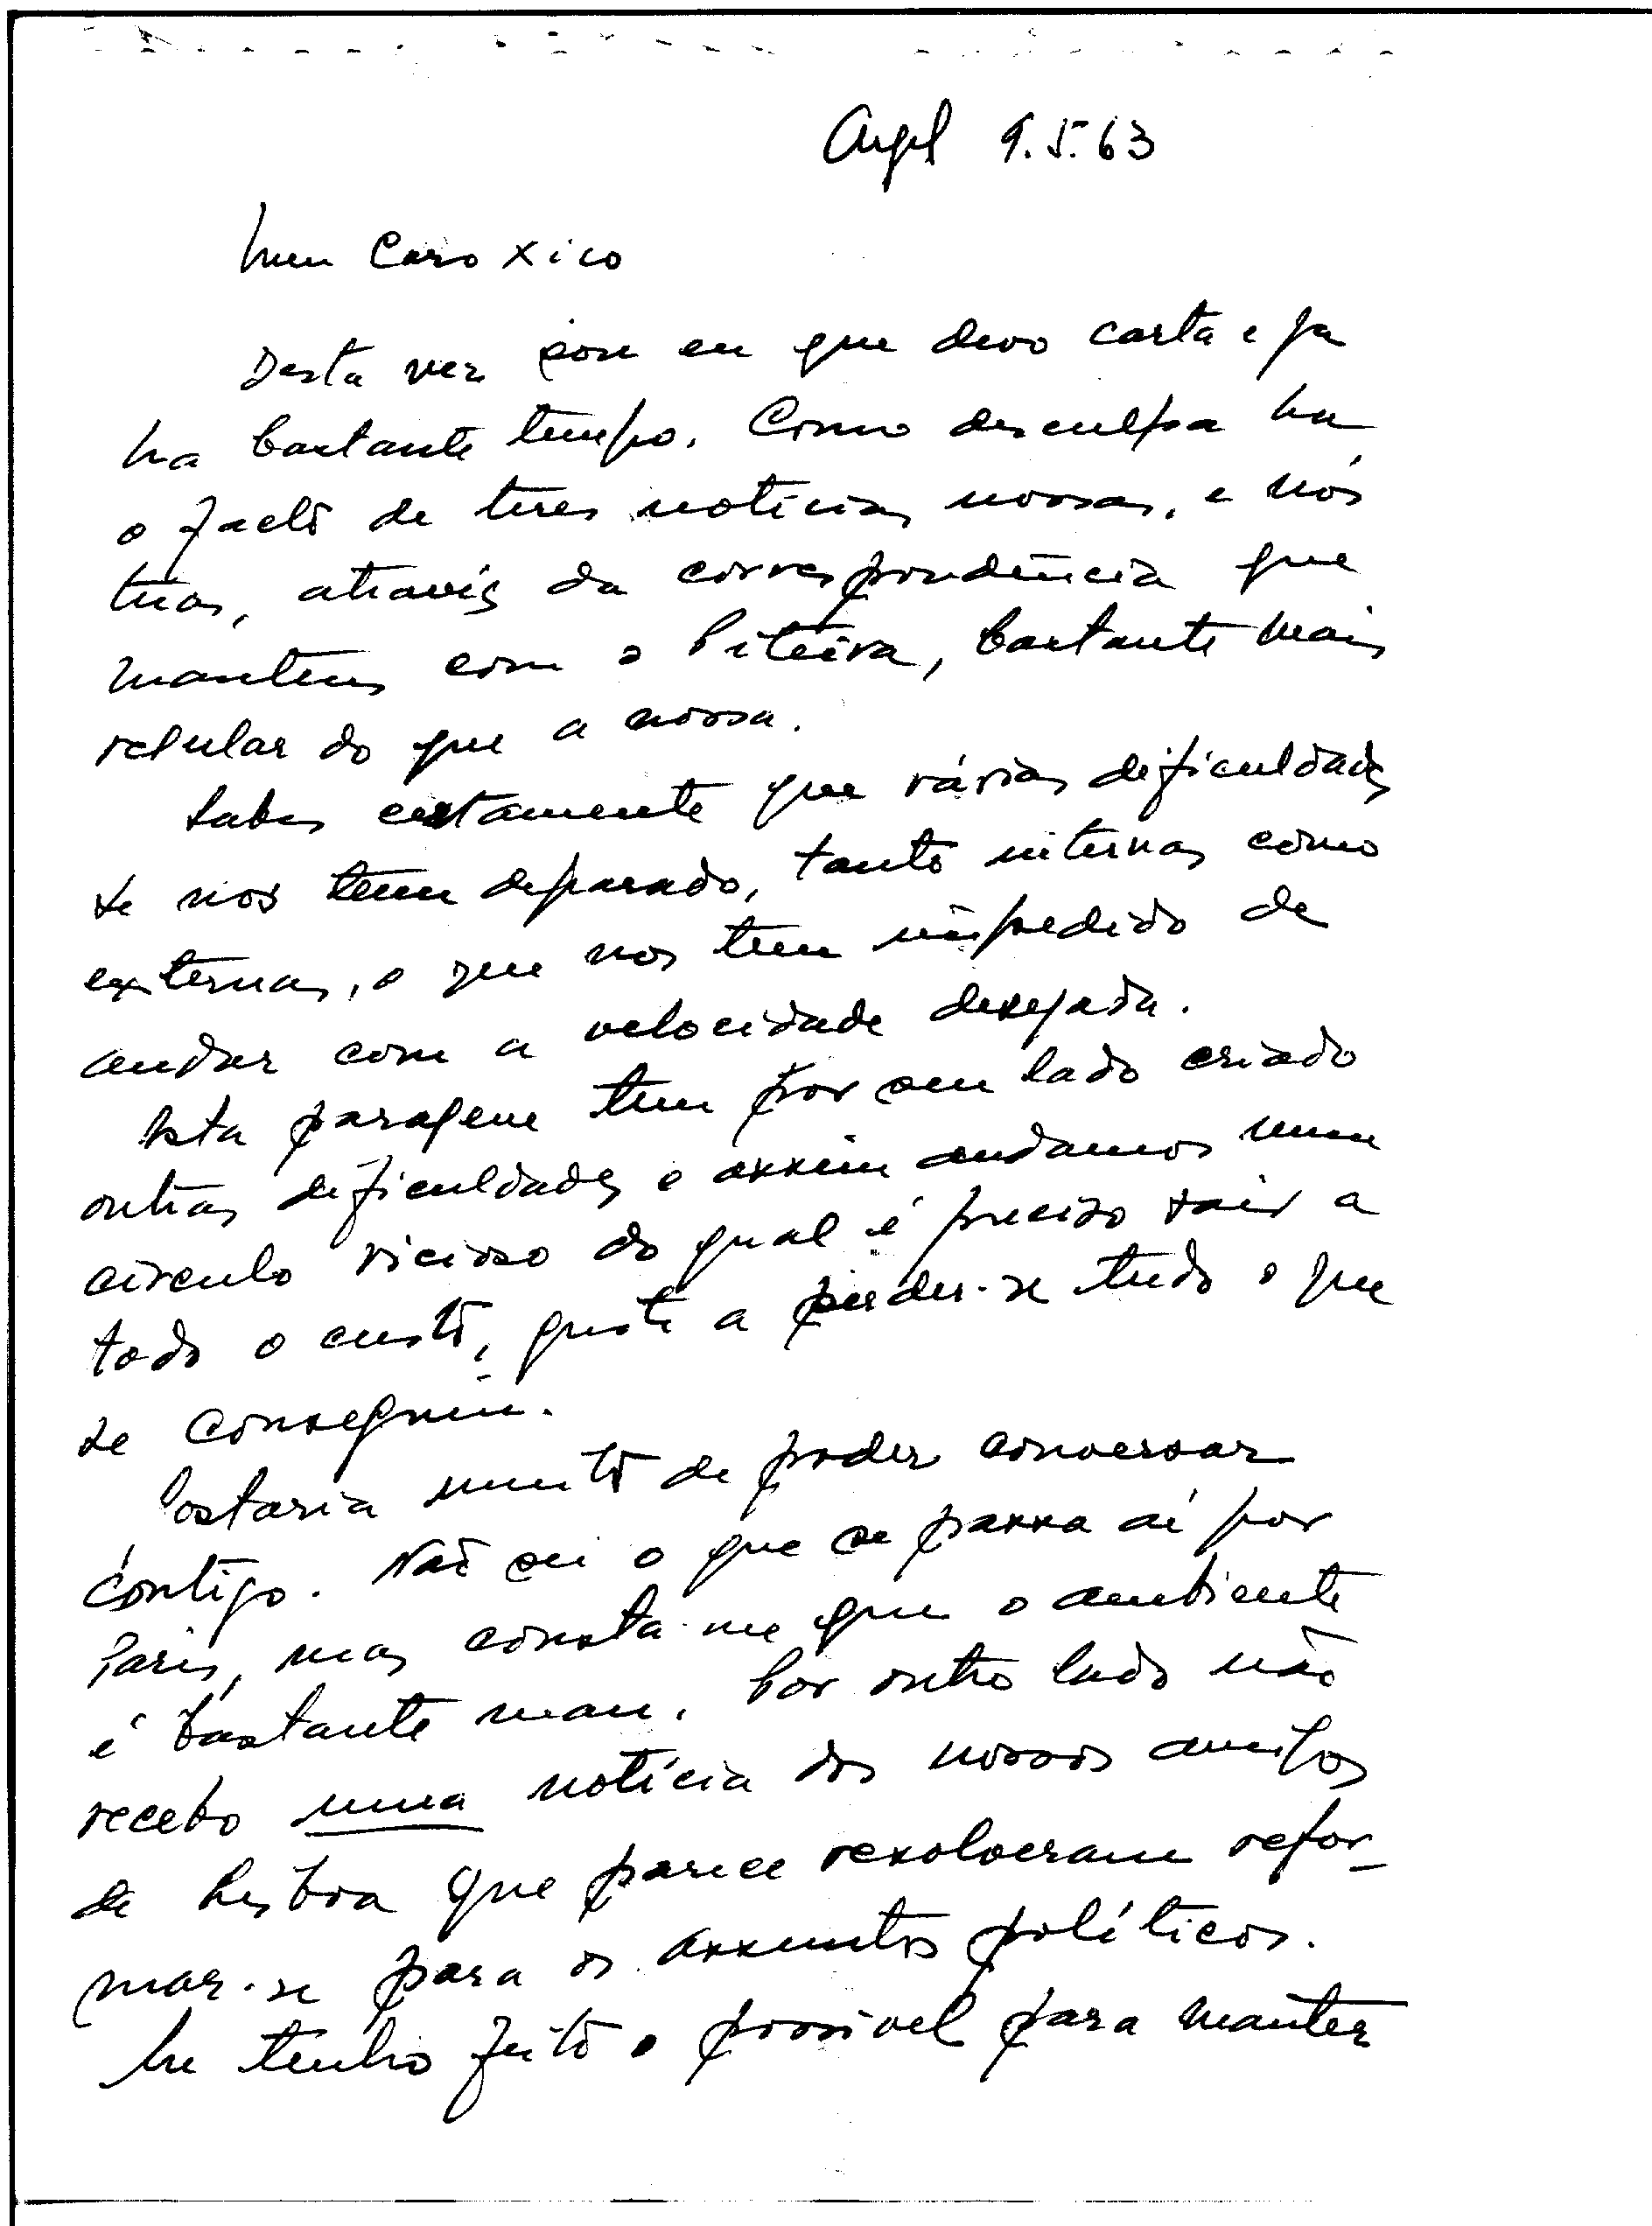 Argel 9.5.63
Meu Caro Xico
Desta vez sou eu que devo carta e ja
ha bastante tempo. Como desculpa ha
o facto de teres noticias nossas, e nós
tuas, através da correspondência que
mantens com o Piteira, bastante mais
regular do que a nossa.
Sabes certamente que várias dificuldades
se nos tem deparado, tanto internas como
externas, o que nos tem impedido de
andar com a velocidade desejada.
Esta paragem tem por seu lado criado
outras dificuldades e assim andamos num
circulo vicioso do qual é preciso sair a
todo o custo, a perder-se tudo o que
se conseguiu.
Gostaria muito de poder conversar
contigo. Não sei o que se passa aí por
Paris, mas consta-me que o ambiente
é bastante mau. Por outro lado não
recebo uma notícia dos nossos amigos
de Lisboa que parece resolveram refor-
mar-se para os assuntos políticos.
Eu tenho feito o possivel para manter